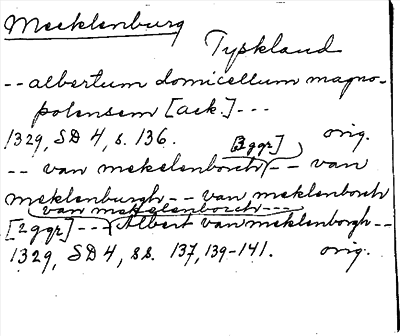 Mecklenburg
Tyskland
-- albertum domicellum magno-
polensem [ack.] ---
1329, SD 4, s. 136. orig.
[3 ggr]
-- van mekelenborch -- van
meklenburgh -- van meklenborch
van mekelenborch ---
[2 ggr] --- Albert van meklenborgh --
1329, SD 4, ss. 137, 139-141. orig.